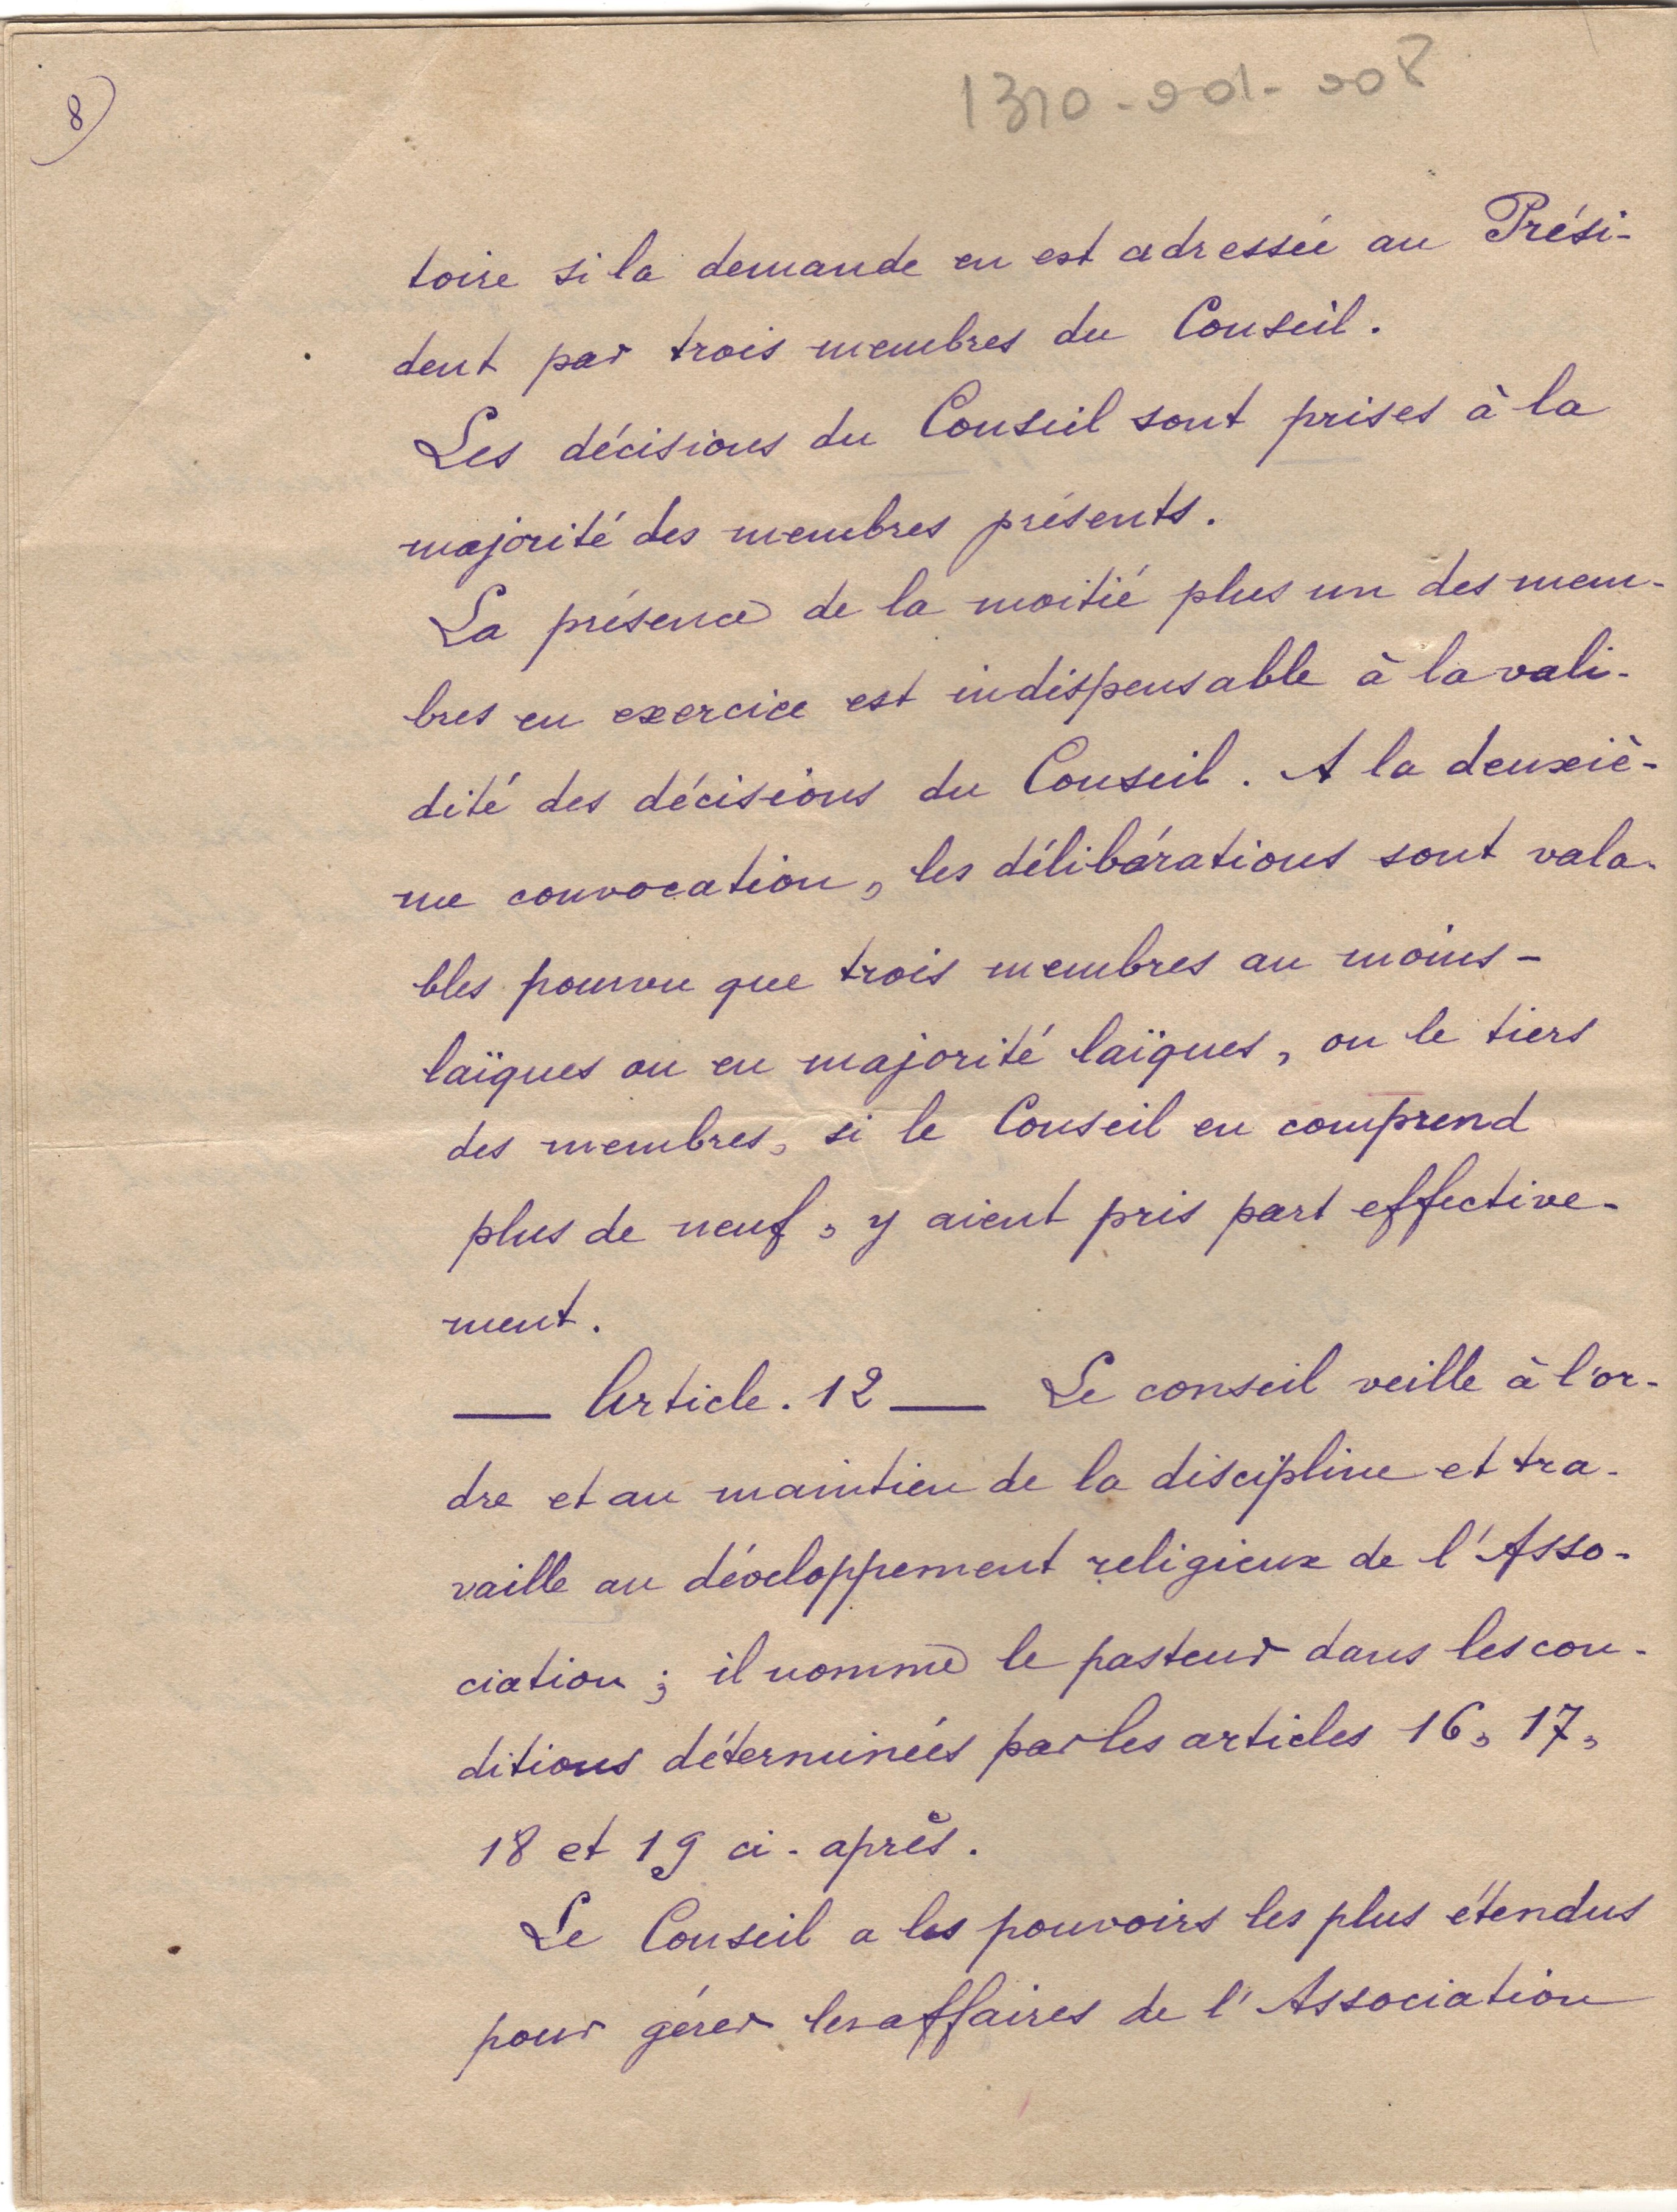 8)
1310-001-008
toire si la demande en est adressée au Prési-
dent par trois membres du Conseil.
Les décisions du Conseil sont prises à la
majorité des membres présents.
La présence de la moitié plus un des mem-
bres en exercice est indispensable à la vali-
dité des décisions du Conseil. A la deuxiè-
me convocation, les délibérations sont vala-
bles pourvu que trois membres au moins-
laïques ou en majorité laïques, ou le tiers
des membres, si le Conseil en comprend
plus de neuf, y aient pris part effective-
ment.
— Article. 12 — Le conseil veille à l'or-
dre et au maintien de la discipline et tra-
vaille au développement religieux de l'Asso-
ciation ; il nomme le pasteur dans les con-
ditions déterminées par les articles 16, 17,
18 et 19 ci-après.
Le Conseil a les pouvoirs les plus étendus
pour gérer les affaires de l'Association